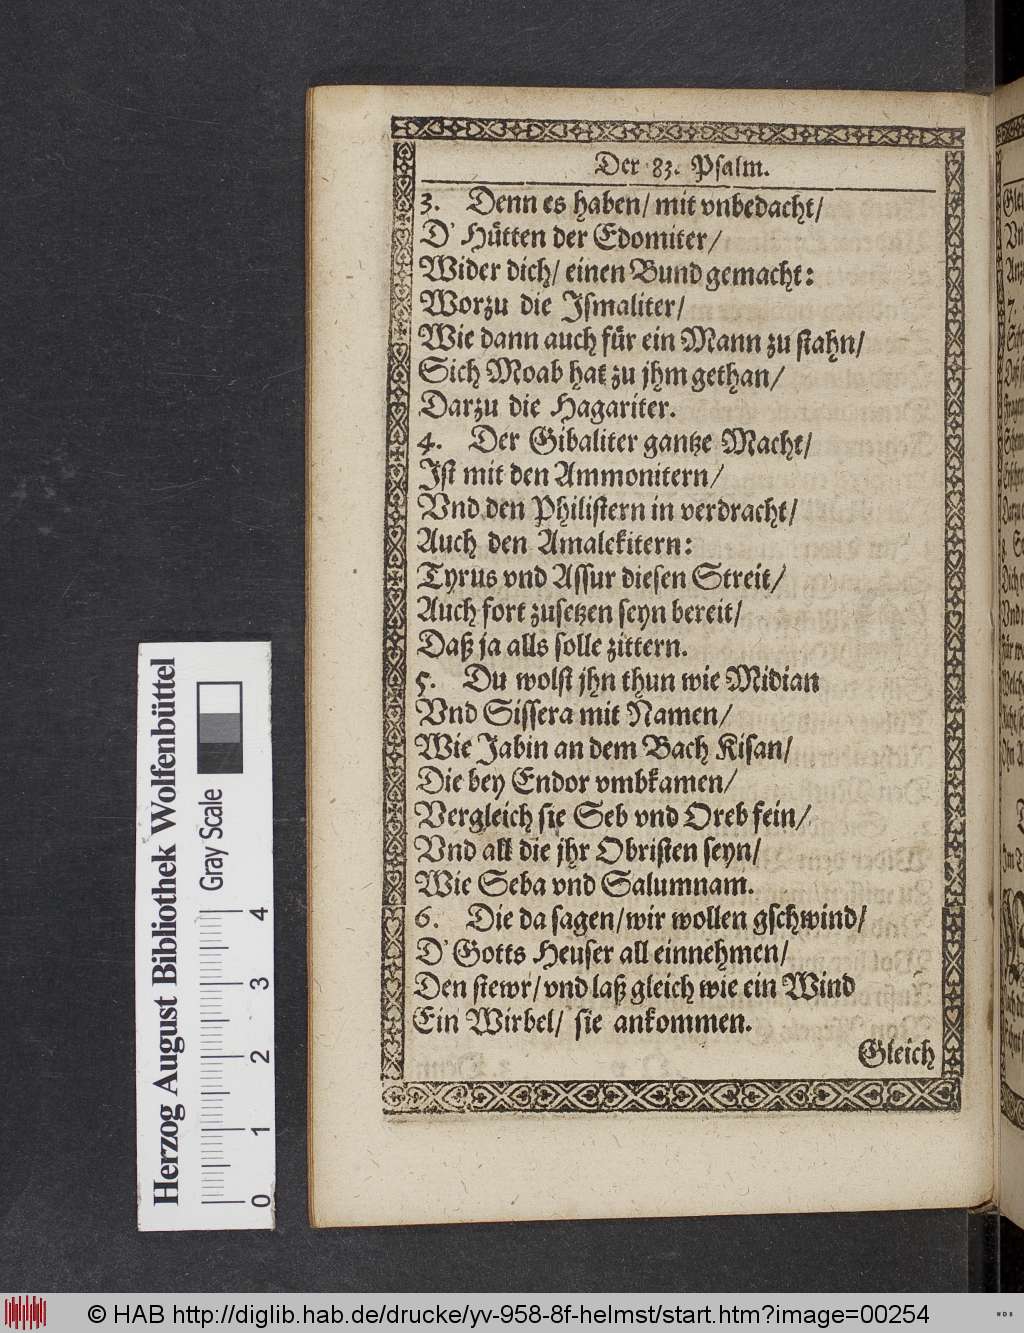 Der 83. Psalm.
3. Denn es haben/ mit vnbedacht/
D' Hütten der Edomiter/
Wider dich/ einen Bund gemacht:
Worzu die Ismaliter/
Wie dann auch für ein Mann zu stahn/
Sich Moab hat zu jhm gethan/
Darzu die Hagariter.
4. Der Gibaliter gantze Macht/
Ist mit den Ammonitern/
Vnd den Philistern in verdracht/
Auch den Amalekitern:
Tyrus vnd Assur diesen Streit/
Auch fort zusetzen seyn bereit/
Daß ja alls solle zittern.
5. Du wolst jhn thun wie Midian
Vnd Sissera mit Namen/
Wie Jabin an dem Bach Kisan/
Die bey Endor vmbkamen/
Vergleich sie Seb vnd Oreb fein/
Vnd all die jhr Obristen seyn/
Wie Seba vnd Salumnam.
6. Die da sagen/ wir wollen gschwind/
D' Gotts Heuser all einnehmen/
Den stewr/ vnd laß gleich wie ein Wind
Ein Wirbel/ sie ankommen.
Gleich
Herzog August Bibliothek Wolfenbüttel
Gray Scale
0 1 2 3 4
© HAB http://diglib.hab.de/drucke/yv-958-8f-helmst/start.htm?image=00254